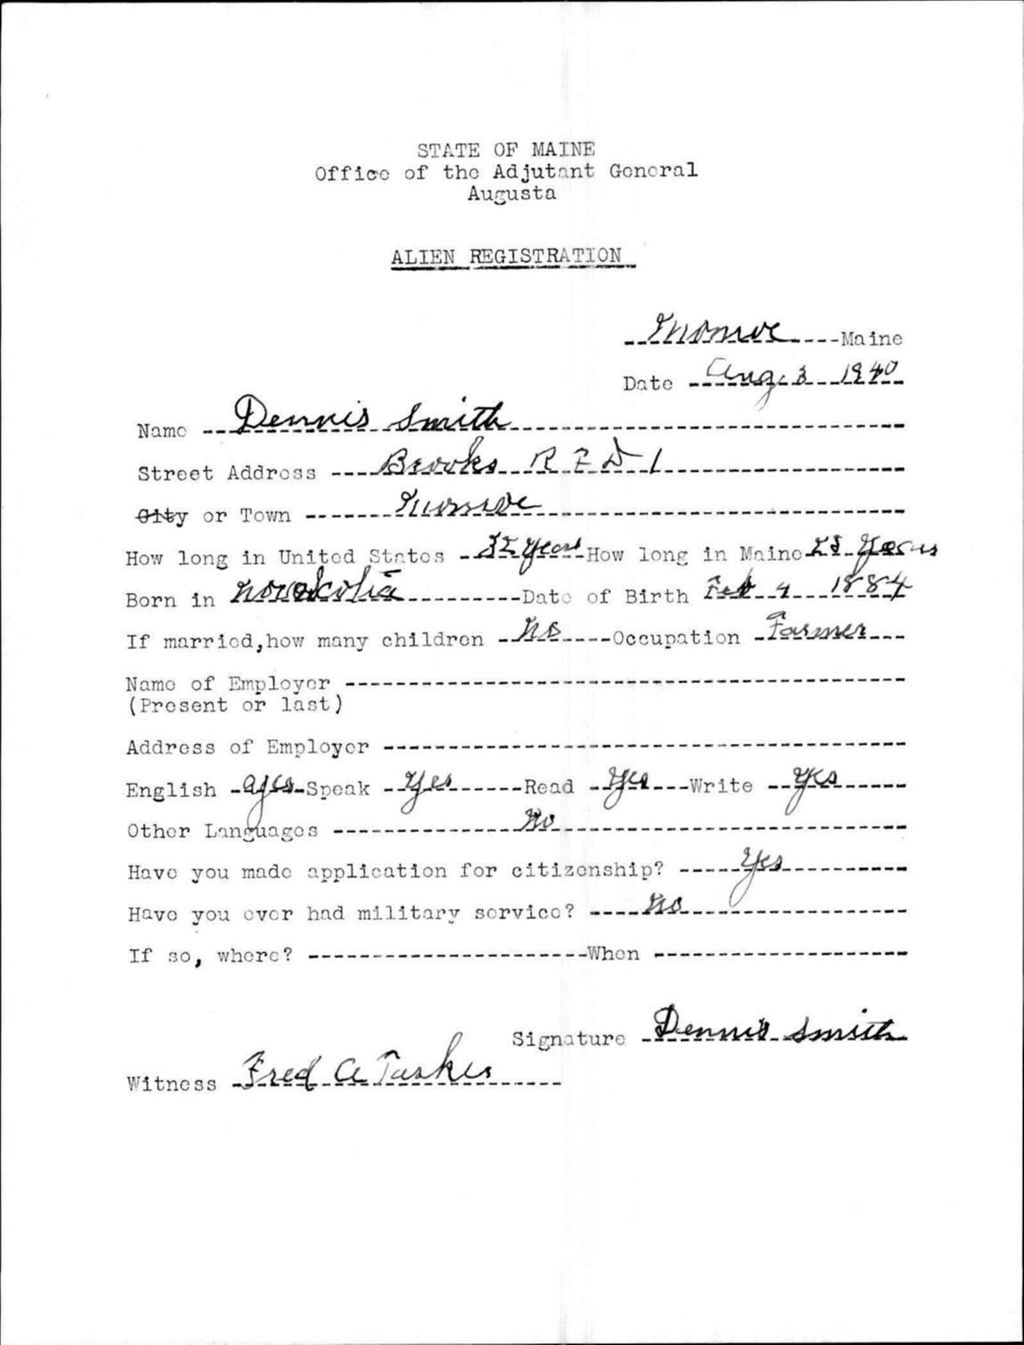 STATE OF MAINE
Office of the Adjutant General
Augusta
ALIEN REGISTRATION
Monroe Maine
Date Aug. 3 1940
Name Dennis Smith
Street Address Brooks R F D 1
City or Town Monroe
How long in United States 32 years How long in Maine 28 Years
Born in Date of Birth Feb 4 1884
If married, how many children No Occupation Farmer
Name of Employer
(Present or last)
Address of Employer
English yes Speak Yes Read Yes Write Yes
Other Languages No
Have you made application for citizenship? Yes
Have you ever had military service? No
If so, where? When
Signature Dennis Smith
Witness Fred A